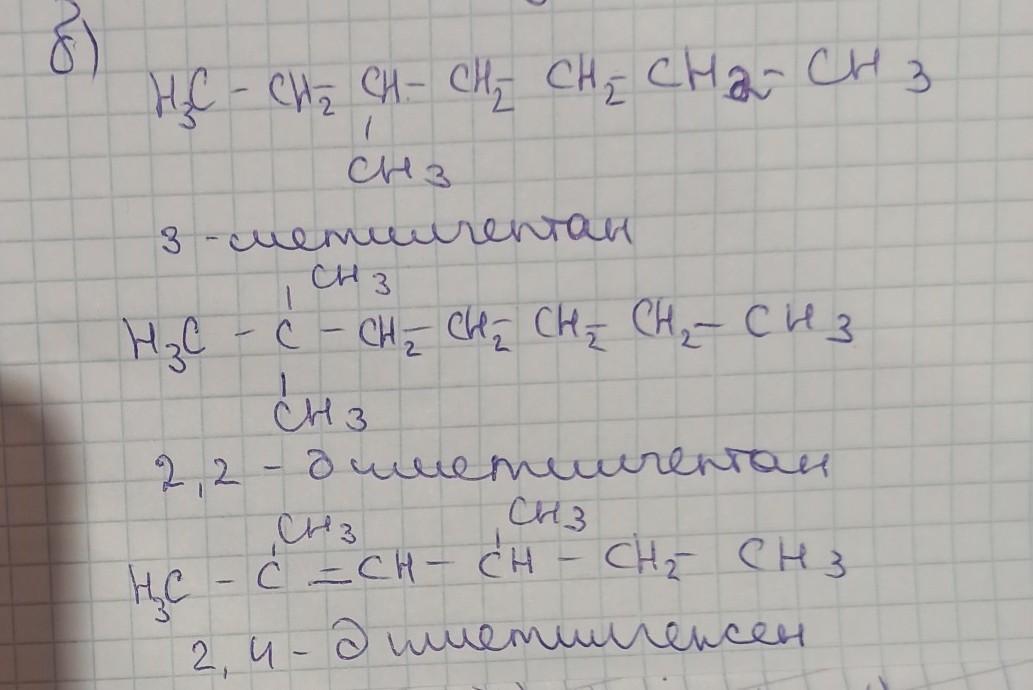 б)
H3C - CH2 - CH - CH2 - CH2 - CH2 - CH3
CH3
3 - метилгептан
CH3
H3C - C - CH2 - CH2 - CH2 - CH2 - CH3
CH3
2,2 - диметилгептан
CH3 CH3
H3C - C = CH - CH - CH2 - CH3
2,4 - диметилгексен